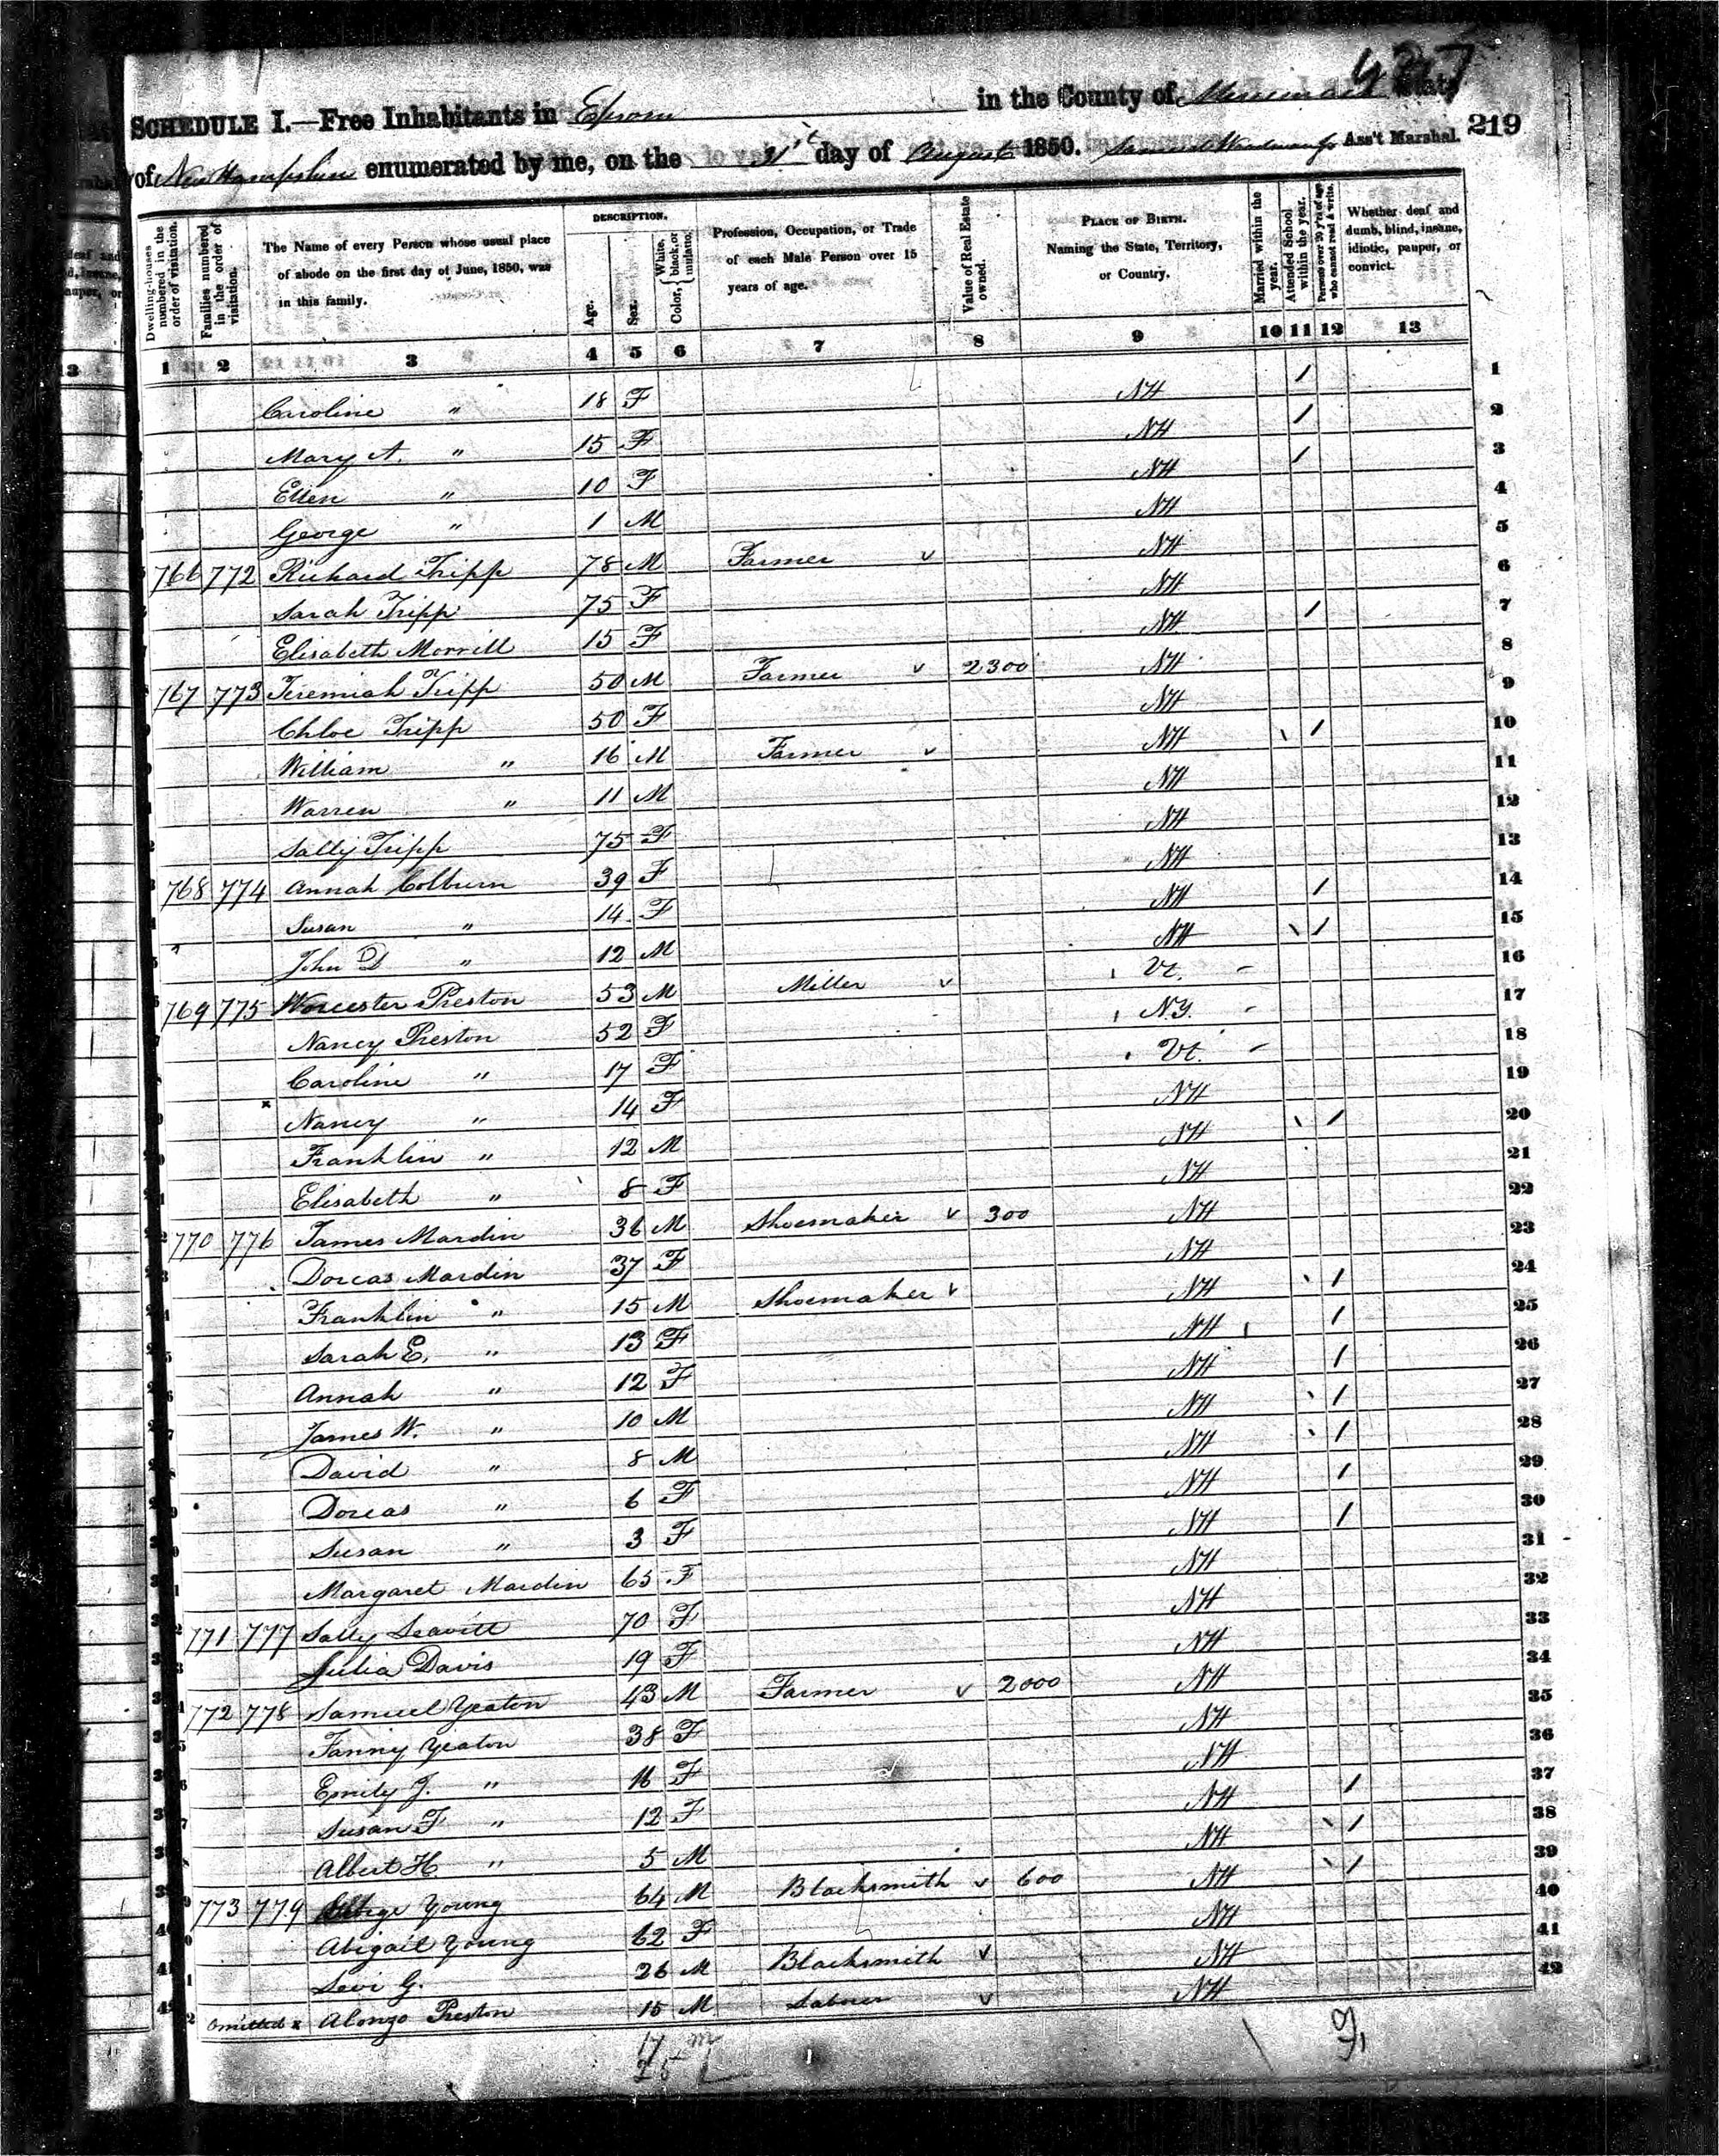 219
SCHEDULE I.—Free Inhabitants in Epsom in the County of Merrimack State
of New Hampshire enumerated by me, on the 31st day of August 1850. Ass't Marshal.
DESCRIPTION.
Dwelling-houses numbered in the order of visitation.
Families numbered in the order of visitation.
The Name of every Person whose usual place of abode on the first day of June, 1850, was in this family.
Age.
Sex.
Color, { White, black, or mulatto.
Profession, Occupation, or Trade of each Male Person over 15 years of age.
Value of Real Estate owned.
PLACE OF BIRTH. Naming the State, Territory, or Country.
Married within the year.
Attended School within the year.
Persons over 20 y'rs of age who cannot read & write.
Whether deaf and dumb, blind, insane, idiotic, pauper, or convict.
1 2 3 4 5 6 7 8 9 10 11 12 13
Caroline " 18 F NH / 1
Mary A. " 15 F NH / 2
Ellen " 10 F NH / 3
George " 1 M NH 4
766 772 Richard Tripp 78 M Farmer v NH 5
Sarah Tripp 75 F NH 6
Elisabeth Morrill 15 F NH / 7
167 773 Jeremiah Tripp 50 M Farmer v 2300 NH 8
Chloe Tripp 50 F NH 9
William " 16 M Farmer v NH / 10
Warren " 11 M NH 11
Sally Tripp 75 F NH 12
768 774 Annah Colburn 39 F NH 13
Susan " 14 F NH / 14
John D " 12 M NH / 15
769 775 Worcester Preston 53 M Miller v Vt. 16
Nancy Preston 52 F N.Y. 17
Caroline " 17 F Vt. 18
x Nancy " 14 F NH 19
Franklin " 12 M NH / 20
Elisabeth " 8 F NH 21
770 776 James Mardin 36 M Shoemaker v 300 NH 22
Dorcas Mardin 37 F NH 23
Franklin " 15 M Shoemaker v NH / 24
Sarah E. " 13 F NH / 25
Annah " 12 F NH / 26
James W. " 10 M NH / 27
David " 8 M NH / 28
Dorcas " 6 F NH / 29
Susan " 3 F NH / 30
Margaret Mardin 65 F NH 31
771 777 Sally Leavitt 70 F NH 32
Julia Davis 19 F NH 33
772 778 Samuel Yeaton 43 M Farmer v 2000 NH 34
Fanny Yeaton 38 F NH 35
Emily J. " 16 F NH 36
Susan F " 12 F NH / 37
Albert H. " 5 M NH / 38
773 779 Young 64 M Blacksmith v 600 NH / 39
Abigail Young 62 F NH 40
Levi G. 26 M Blacksmith v NH 41
Omitted x Alonzo Preston 15 M Laborer v NH 42
17 m
25 f